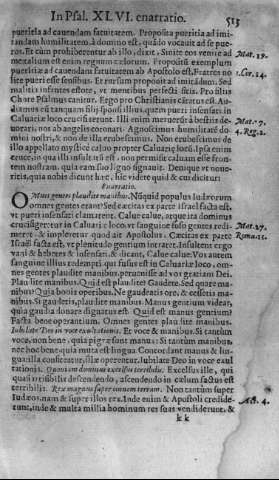 In Psal. XLVI. enarratio.
513
pueriliā ad cauendam fatuitatem. Proposita pueritia ad imi-
tandam humilitatem, à domino est, quādo vocauit ad se pue-
ros. Et cùm prohiberentur ab illo, dixit, Sinite eos venire ad
me: talium est enim regnum cælorum. Proposito exemplum
pueritiæ ad cauendam fatuitatem ab Apostolo est, Fratres no
lite pueri esse sensibus. Et rursum proposuit ad imitandum, Sed
malitia infantes estote, vt mensibus perfecti sitis. Pro filiis
Chore Psalmus cantatur. Ergo pro Christianis cātatur est. Au-
diamus eū tanquam filij sponsi illius, quem pueri insensati in
Caluariæ loco crucifixerunt. Illi enim meruerūt à bestiis de-
uorari, nos ab angelis coronari. Agnoscimus humilitatē do-
mini nostri, & non de illa erubescimus. Non erubescimus de
illo appellato mysticè caluo propter Caluariæ locū. Ipsa enim
cruce, in qua illi insultatū est, non permisit caluam esse fron-
tem nostram, quia eam suo signo signauit. Denique vt noue-
ritis, quia nobis dicunt hæc, hic videte quid & cui dicitur:
Enarratio.
OMnes gentes plaudite manibus. Nūquid populus Iudæorum
omnes gentes erant? Sed cæcitas ex parte Israël facta est,
vt pueri insensati clamarent, Calue calue, atque ita dominus
crucifigeretur in Caluariæ loco, vt sanguine fuso gentes redi-
meret, & impleretur quod ait Apostolus, Cæcitas ex parte
Israël facta est, vt plenitudo gentium intraret. Insultent ergo
vani & hebetes & insensati, & dicant, Calue calue. Vos autem
sanguine illius redempti qui fusus est in Caluariæ loco, om-
nes gentes plaudite manibus, peruenit ad vos gratiæ Dei.
Plaudite manibus. Quid est plaudite? Gaudete. Sed quare ma-
nibus? Quia bonis operibus. Ne gaudeatis ore, & cessetis ma-
nibus. Si gaudetis, plaudite manibus. Manus gentium videat,
quia gaudia donare dignatus est. Quid est manus gentium?
Facta bene operantium. Omnes gentes plaudite manibus.
Iubilate Deo in voce exultationis. Et voce & manibus. Si tantùm
voce, non bene, quia pigræ sunt manus: Si tantùm manibus,
nec hoc bene quia muta est lingua. Concordant manus & lin-
gua: illa confiteatur, illæ operentur. Iubilate Deo in voce exul
tationis. Quoniam dominus excelsus terribilis. Excelsus ille, qui
quasi irrisibilis descendendo, ascendendo in cælum factus est
terribilis. Rex magnus super omnem terram. Non tantùm super
Iudæos, nam & super illos rex. Inde enim & Apostoli credide-
runt, inde & multa millia hominum res suas vendiderunt, &
kk
Mat. 19.
1. Cor. 14.
Mat. 7.
4. Reg. 2.
Mat. 27.
Roma. 11.
Act. 4.